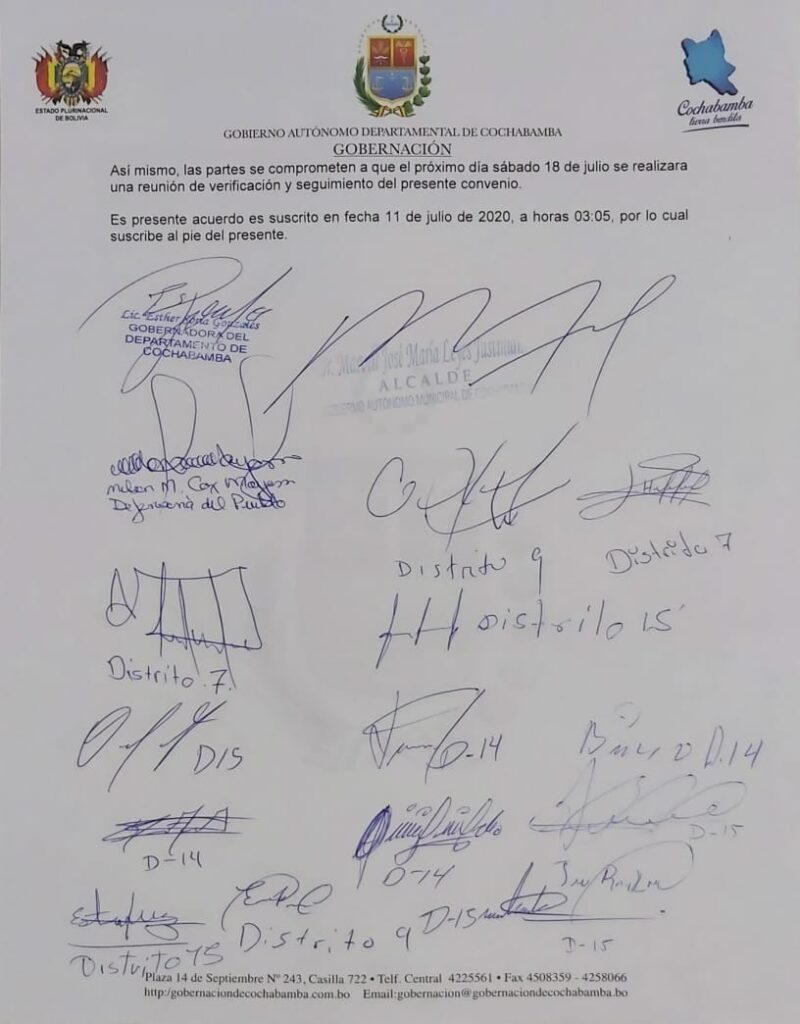 ESTADO PLURINACIONAL
DE BOLIVIA
Cochabamba
tierra bendita
GOBIERNO AUTÓNOMO DEPARTAMENTAL DE COCHABAMBA
GOBERNACIÓN
Así mismo, las partes se comprometen a que el próximo día sábado 18 de julio se realizara
una reunión de verificación y seguimiento del presente convenio.
Es presente acuerdo es suscrito en fecha 11 de julio de 2020, a horas 03:05, por lo cual
suscribe al pie del presente.
Lic. Esther Soria Gonzales
GOBERNADORA DEL
DEPARTAMENTO DE
COCHABAMBA
José María Leyes Justiniano
ALCALDE
GOBIERNO AUTÓNOMO MUNICIPAL DE
Nelson M. Cox Mayorga
Defensoria del Pueblo
Distrito 9
Distrito 7
Distrito 7.
Distrito 15
D15
D-14
D.14
D-14
D-14
D-15
Distrito 15
Distrito 9
D-15
D-15
Plaza 14 de Septiembre Nº 243, Casilla 722 • Telf. Central 4225561 • Fax 4508359 - 4258066
http:/gobernaciondecochabamba.com.bo Email:gobernacion@gobernaciondecochabamba.bo